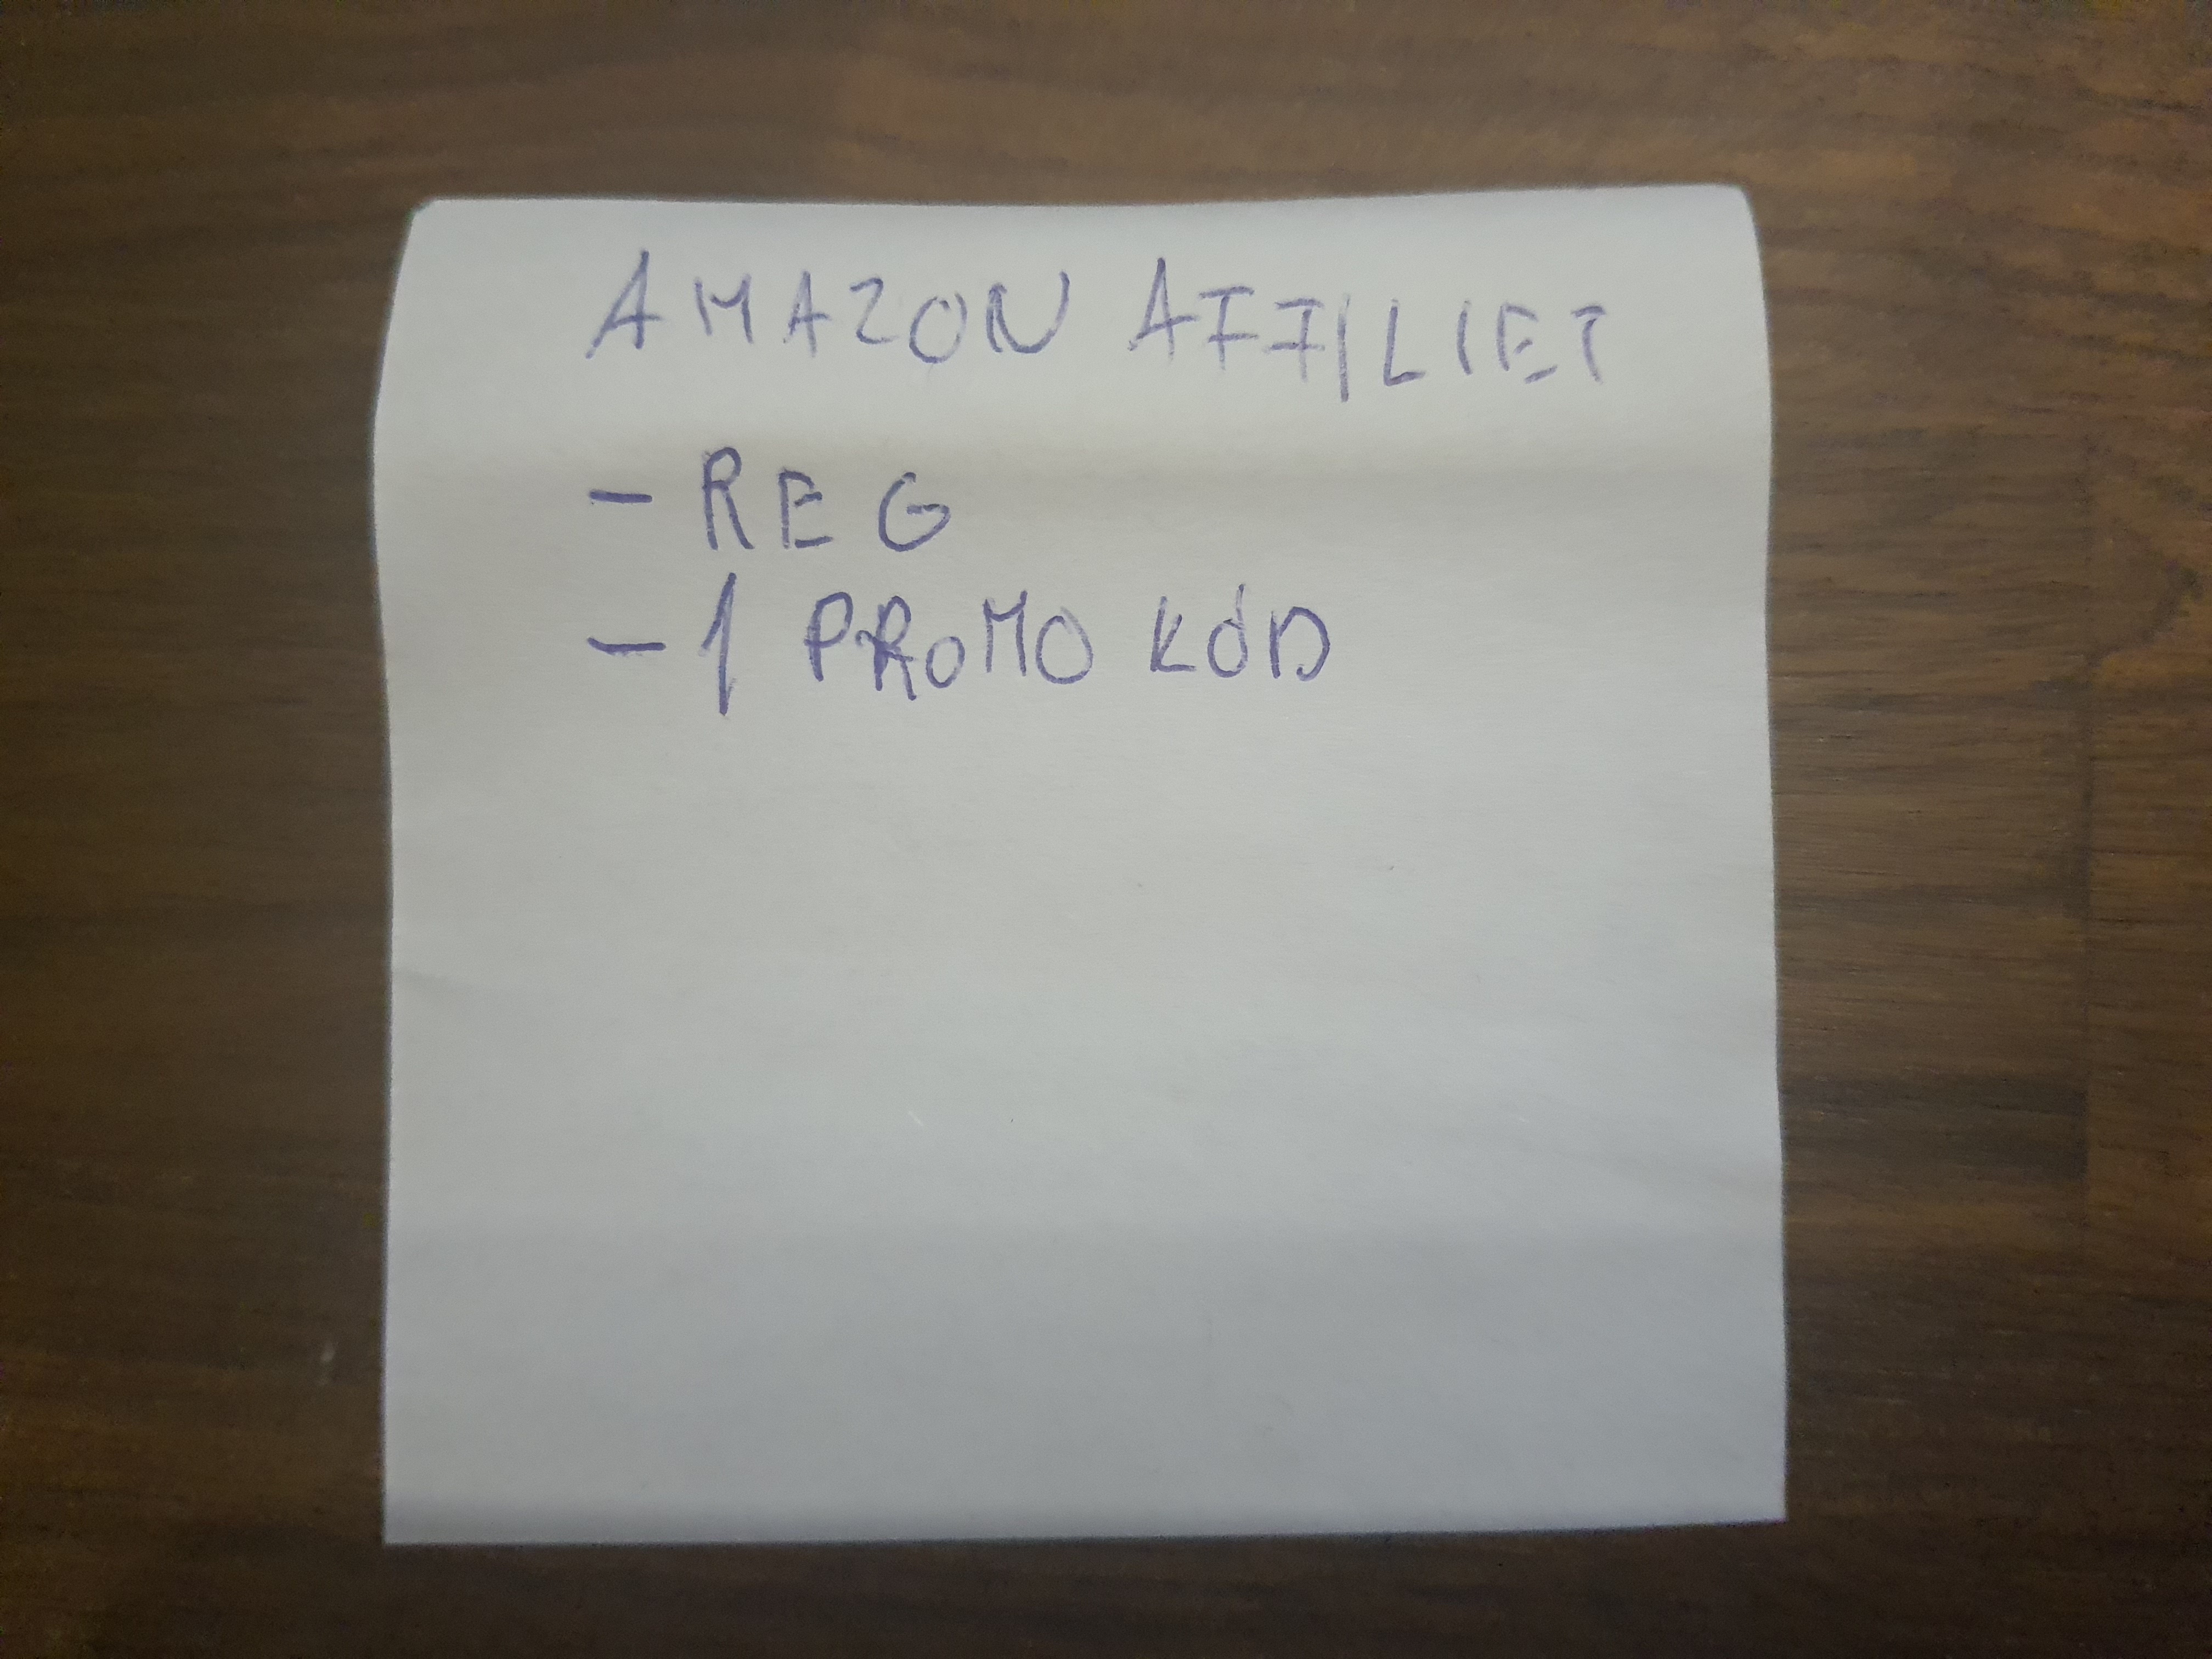 AMAZON AFFILIET
- REG
- 1 PROMO KÓD